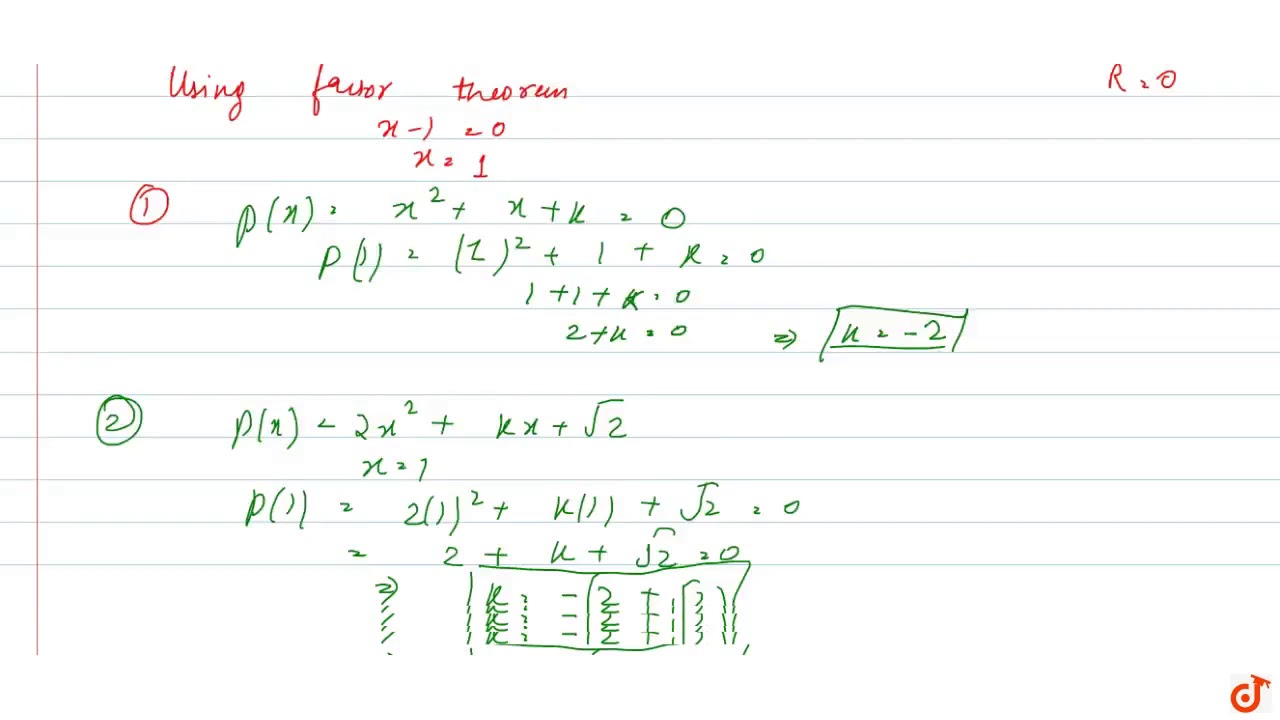 Using factor theorem
R = 0
x - 1 = 0
x = 1
① p(x) = x² + x + k = 0
p(1) = (1)² + 1 + k = 0
1 + 1 + k = 0
2 + k = 0 ⇒ k = -2
② p(x) = 2x² + kx + √2
x = 1
p(1) = 2(1)² + k(1) + √2 = 0
= 2 + k + √2 = 0